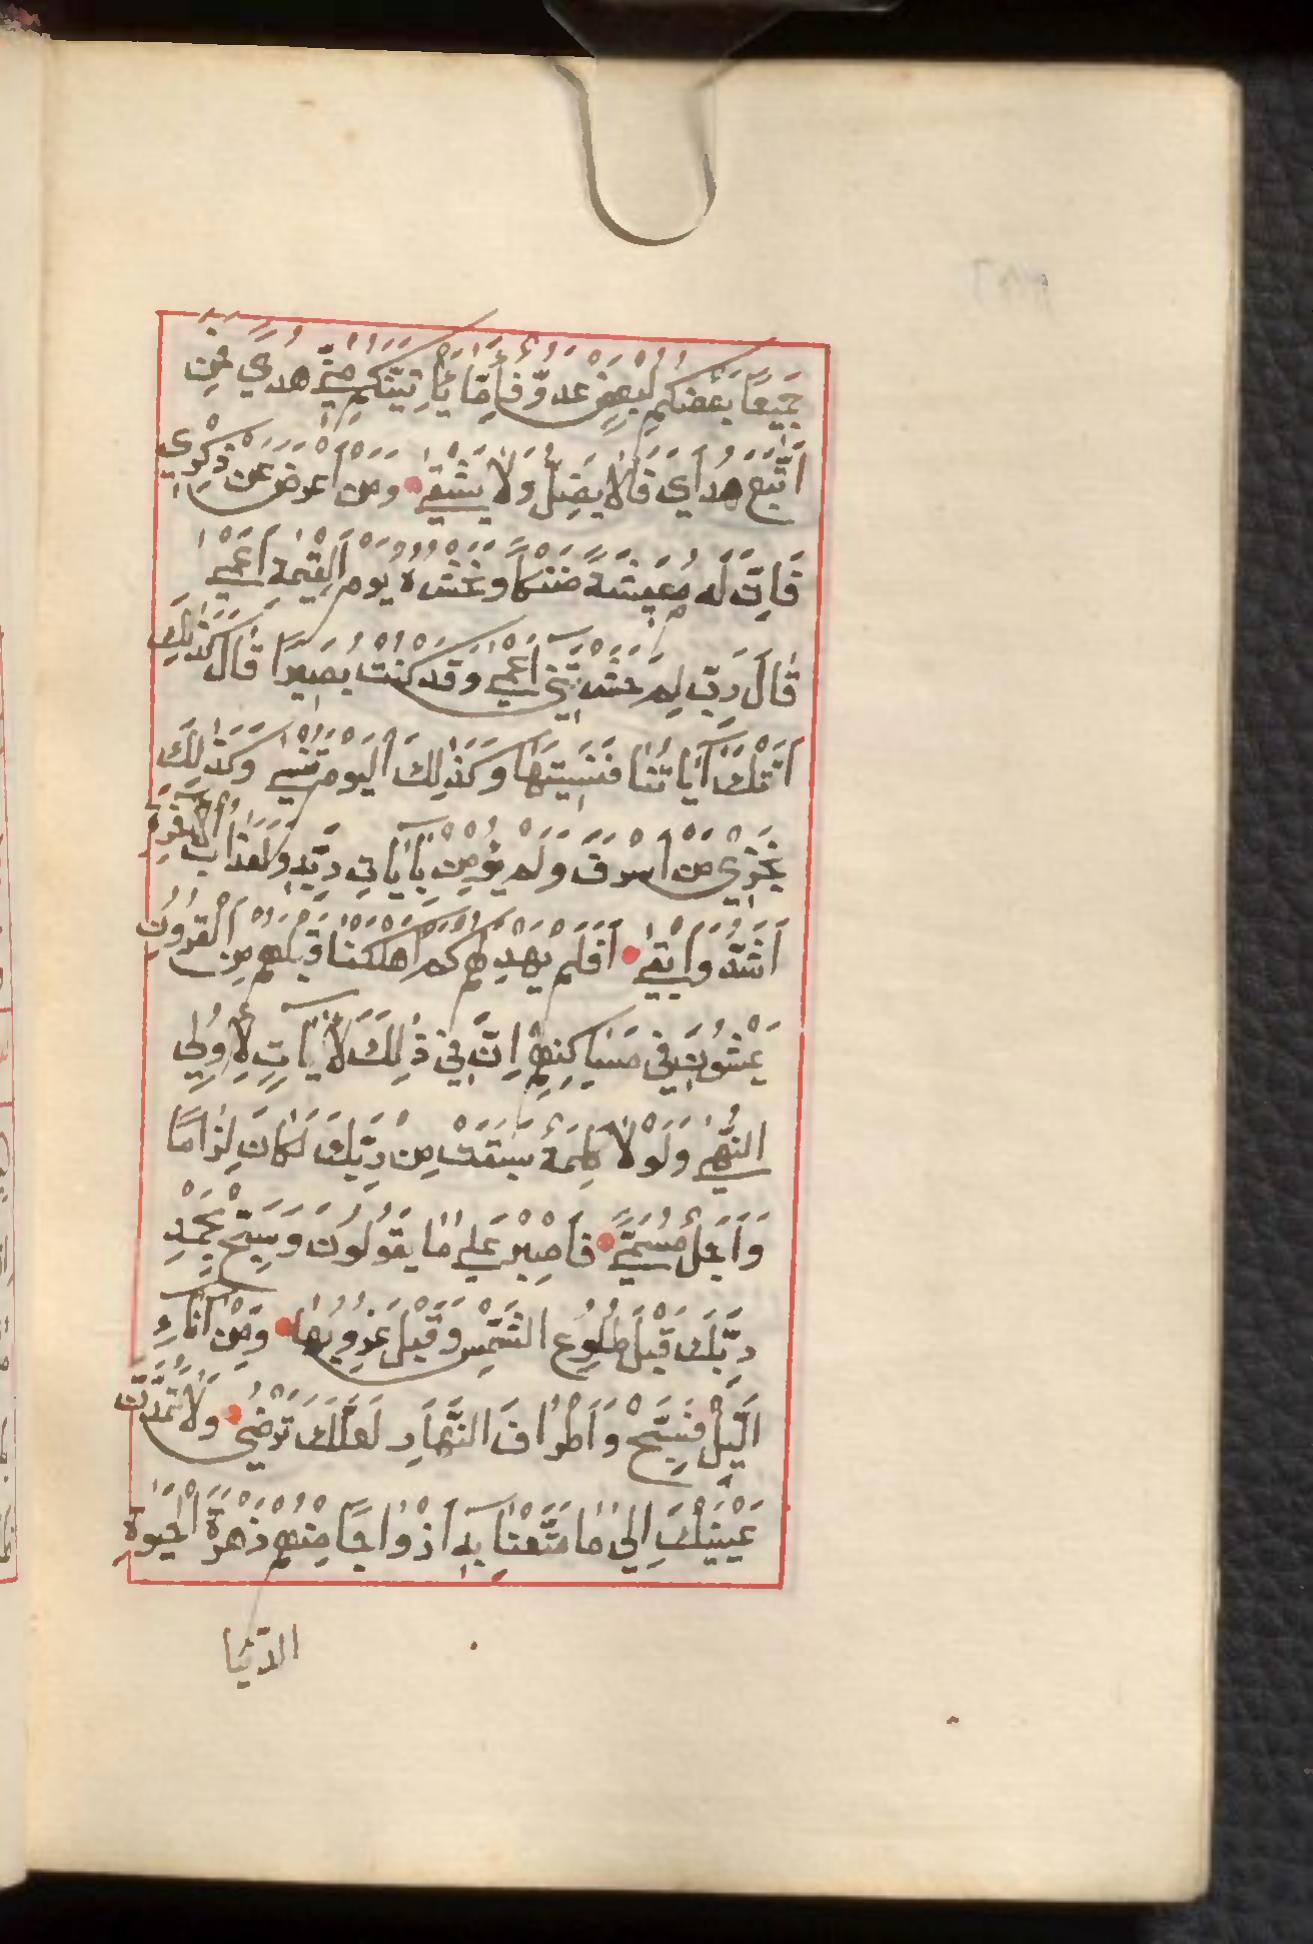 جَمِيعًا بَعْضُكُمْ لِبَعْضٍ عَدُوٌّ فَاِمَّا يَاْتِيَنَّكُمْ مِنِّي هُدًي فَمَنِ
اتَّبَعَ هُدَايَ فَلَا يَضِلُّ وَلَا يَشْقٰي وَمَنْ اَعْرَضَ عَنْ ذِكْرِي
فَاِنَّ لَهُ مَعِيشَةً ضَنْكًا وَنَحْشُرُهُ يَوْمَ الْقِيٰمَةِ اَعْمٰي
قَالَ رَبِّ لِمَ حَشَرْتَنِي اَعْمٰي وَقَدْ كُنْتُ بَصِيرًا قَالَ كَذٰلِكَ
اَتَتْكَ آيَاتُنَا فَنَسِيتَهَا وَكَذٰلِكَ الْيَوْمَ تُنْسٰي وَكَذٰلِكَ
نَجْزِي مَنْ اَسْرَفَ وَلَمْ يُؤْمِنْ بِآيَاتِ رَبِّهِ وَلَعَذَابُ الْآخِرَةِ
اَشَدُّ وَاَبْقٰي اَفَلَمْ يَهْدِ لَهُمْ كَمْ اَهْلَكْنَا قَبْلَهُمْ مِنَ الْقُرُونِ
يَمْشُونَ فِي مَسَاكِنِهِمْ اِنَّ فِي ذٰلِكَ لَآيَاتٍ لِاُولِي
النُّهٰي وَلَوْلَا كَلِمَةٌ سَبَقَتْ مِنْ رَبِّكَ لَكَانَ لِزَامًا
وَاَجَلٌ مُسَمًّي فَاصْبِرْ عَلٰي مَا يَقُولُونَ وَسَبِّحْ بِحَمْدِ
رَبِّكَ قَبْلَ طُلُوعِ الشَّمْسِ وَقَبْلَ غُرُوبِهَا وَمِنْ آنَاءِ
الَّيْلِ فَسَبِّحْ وَاَطْرَافَ النَّهَارِ لَعَلَّكَ تَرْضٰي وَلَا تَمُدَّنَّ
عَيْنَيْكَ اِلٰي مَا مَتَّعْنَا بِهِ اَزْوَاجًا مِنْهُمْ زَهْرَةَ الْحَيٰوةِ
الدُّنْيَا